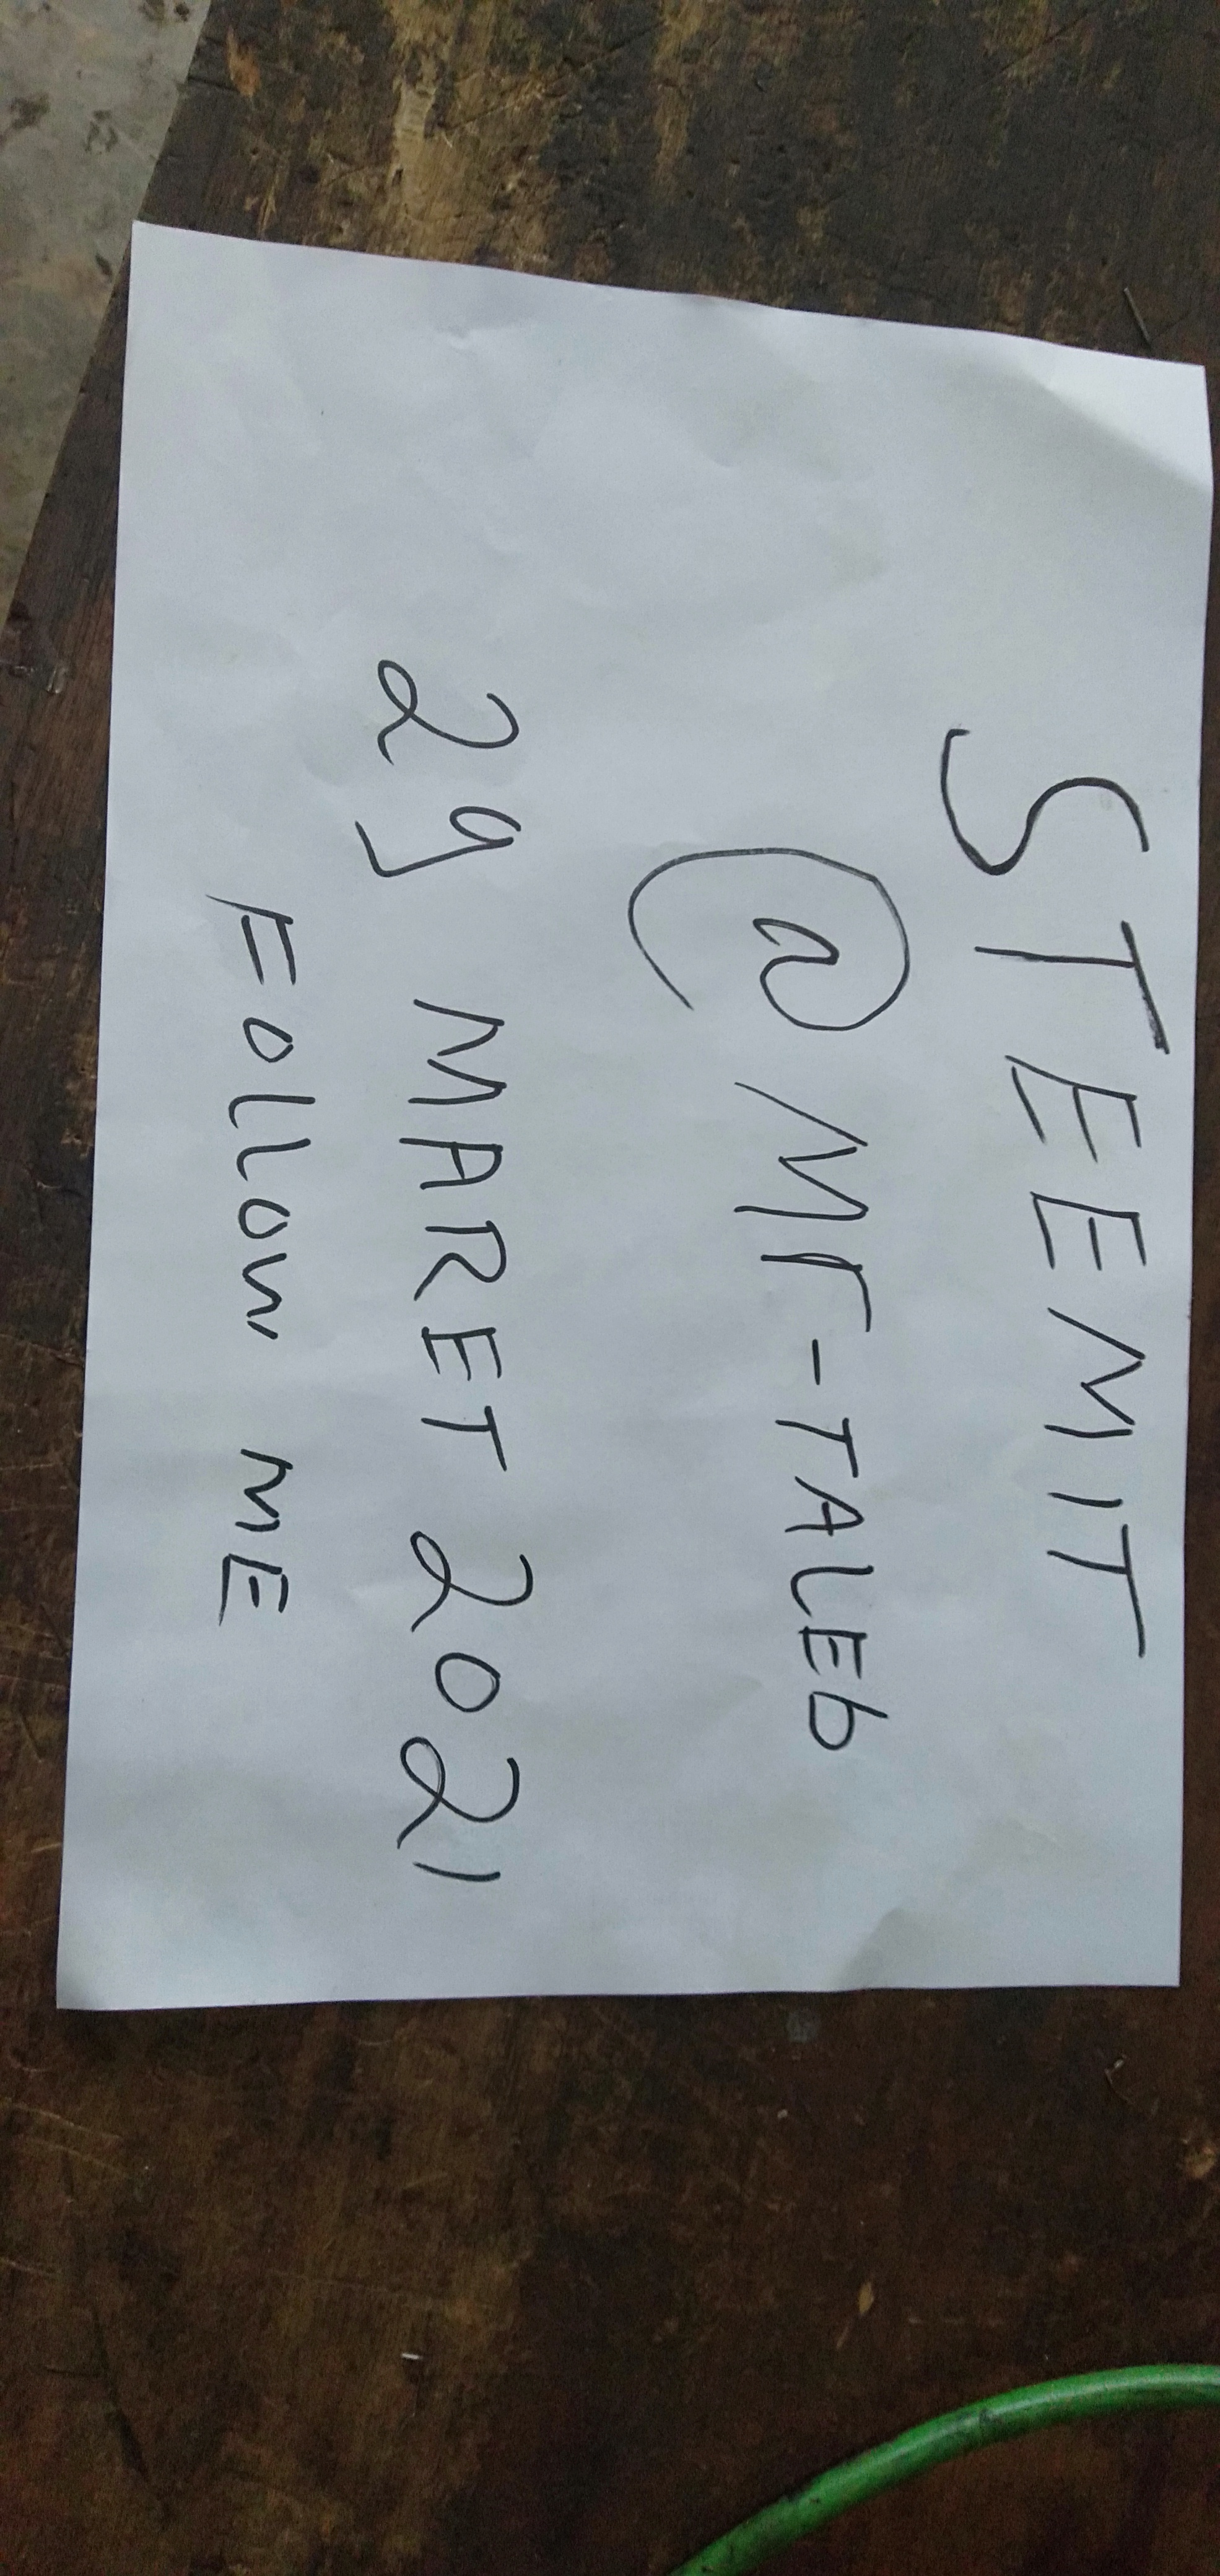 STEEMIT
@Mr-TALEb
29 MARET 2021
FOllOW ME